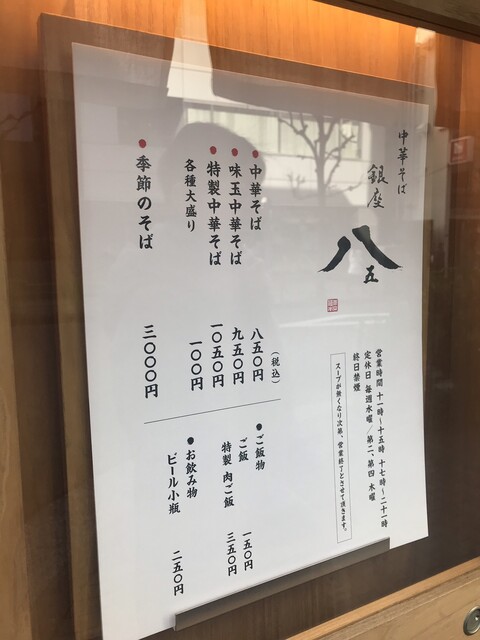 中華そば
銀座
八五
営業時間 十一時～十五時 十七時～二十一時
定休日 毎週水曜／第二、第四 木曜
終日禁煙
スープが無くなり次第、営業終了とさせて頂きます。
（税込）
●中華そば 八五〇円
●味玉中華そば 九五〇円
●特製中華そば 一〇五〇円
各種大盛り 一〇〇円
●季節のそば 三〇〇〇円
●ご飯物
ご飯 一五〇円
特製 肉ご飯 三五〇円
●お飲み物
ビール小瓶 二五〇円